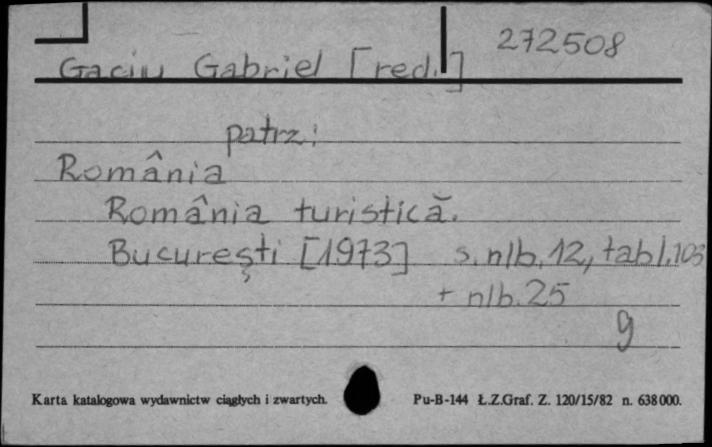 272508
Gaciu Gabriel [red.]
patrz:
România
România turistică.
București [1973] s. nlb. 12, tabl. 103
+ nlb. 25
g
Karta katalogowa wydawnictw ciągłych i zwartych.
Pu-B-144 Ł.Z.Graf. Z. 120/15/82 n. 638000.